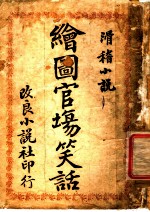 滑稽小說
繪圖官場笑話
改良小說社印行